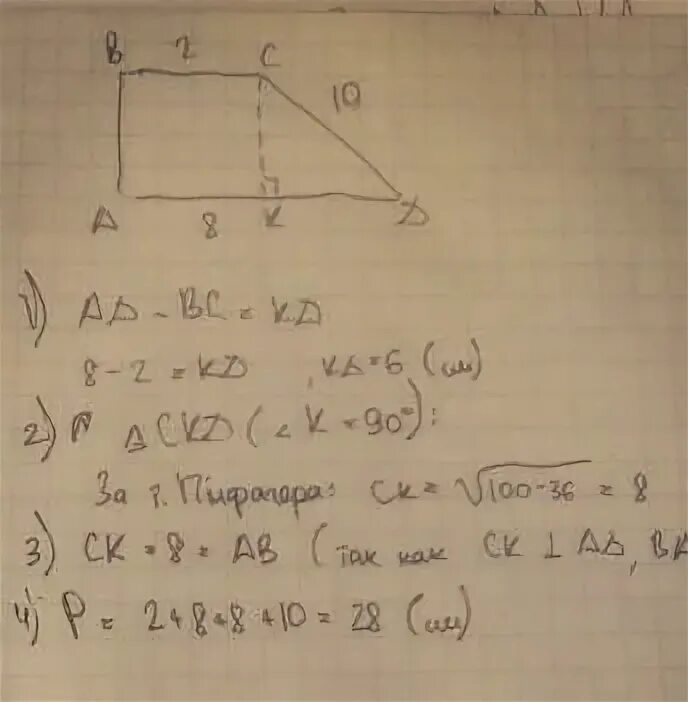 B 2 C
10
A 8 K D
1) AD - BC = KD
8 - 2 = KD , KD = 6 (см)
2) △CKD (∠K = 90°):
За т. Пифагора: CK = √100-36 = 8
3) CK = 8 = AB (так как CK ⊥ AD, BA
4) P = 2+8+8+10 = 28 (см)